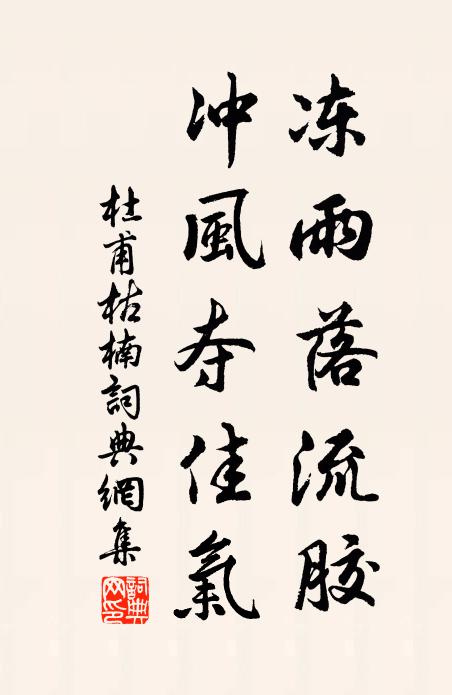 冻雨落流胶
冲風夺佳氣
杜甫枯楠詞典網集
詞典网印